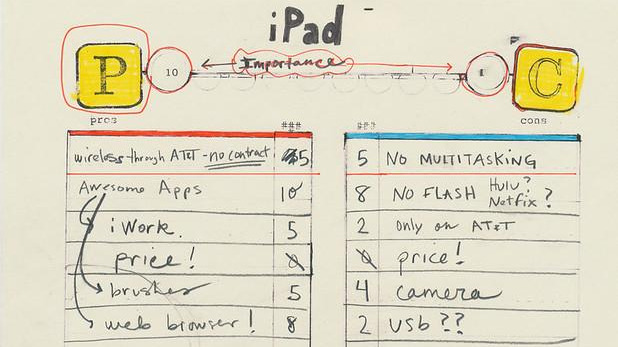 iPad
P
10
Importance
1
C
pros
cons
###
wireless-through AT&T - no contract 5
Awesome Apps 10
iWork 5
price!
brushes 5
web browser! 8
###
5 NO MULTITASKING
8 NO FLASH Hulu? Netfix?
2 only on AT&T
price!
4 camera
2 usb??